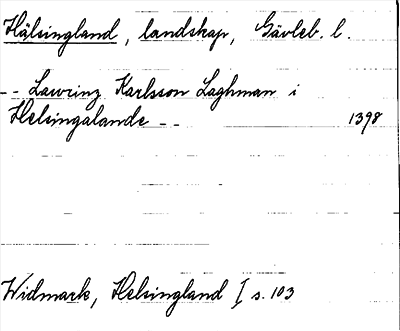 Hälsingland, landskap, Gävleb. l.
-- Lawrinz Karlsson Laghman i
Helsingalande -- 1398
Widmark, Helsingland I s. 103